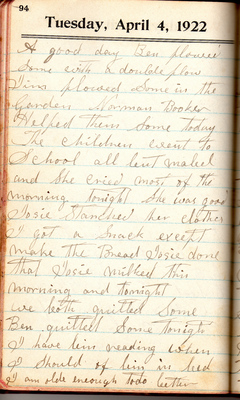 94
Tuesday, April 4, 1922
A good day Ben plowed
Some with a double plow
Tims plowed Some in the
Garden Norman Booker
Helped them Some today
The children went to
School all but mabel
and She cried most of the
morning tonight She was good
Josie Starched her clothes
I got a Snack except
make the Bread Josie done
that Josie milked this
morning and tonight
we both quilted Some
Ben quilted Some tonight
I have bin reading when
I Should of bin in bed
I am olde enough todo better